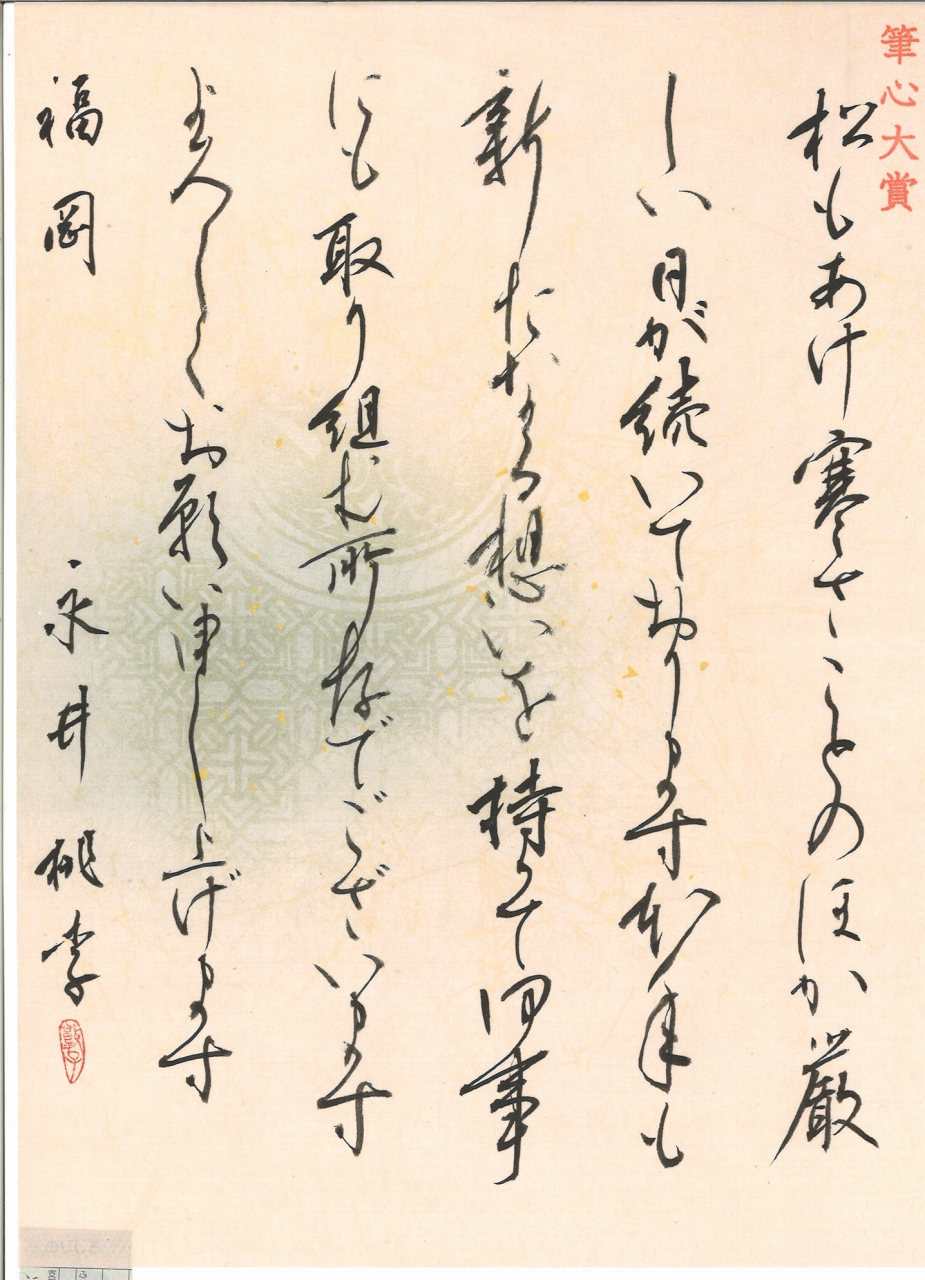 筆心大賞
松もあけ寒さことのほか厳
しい日が続いております本年も
新たなる想いを持って何事
にも取り組む所存でございます
よろしくお願い申し上げます
福岡 永井桃李